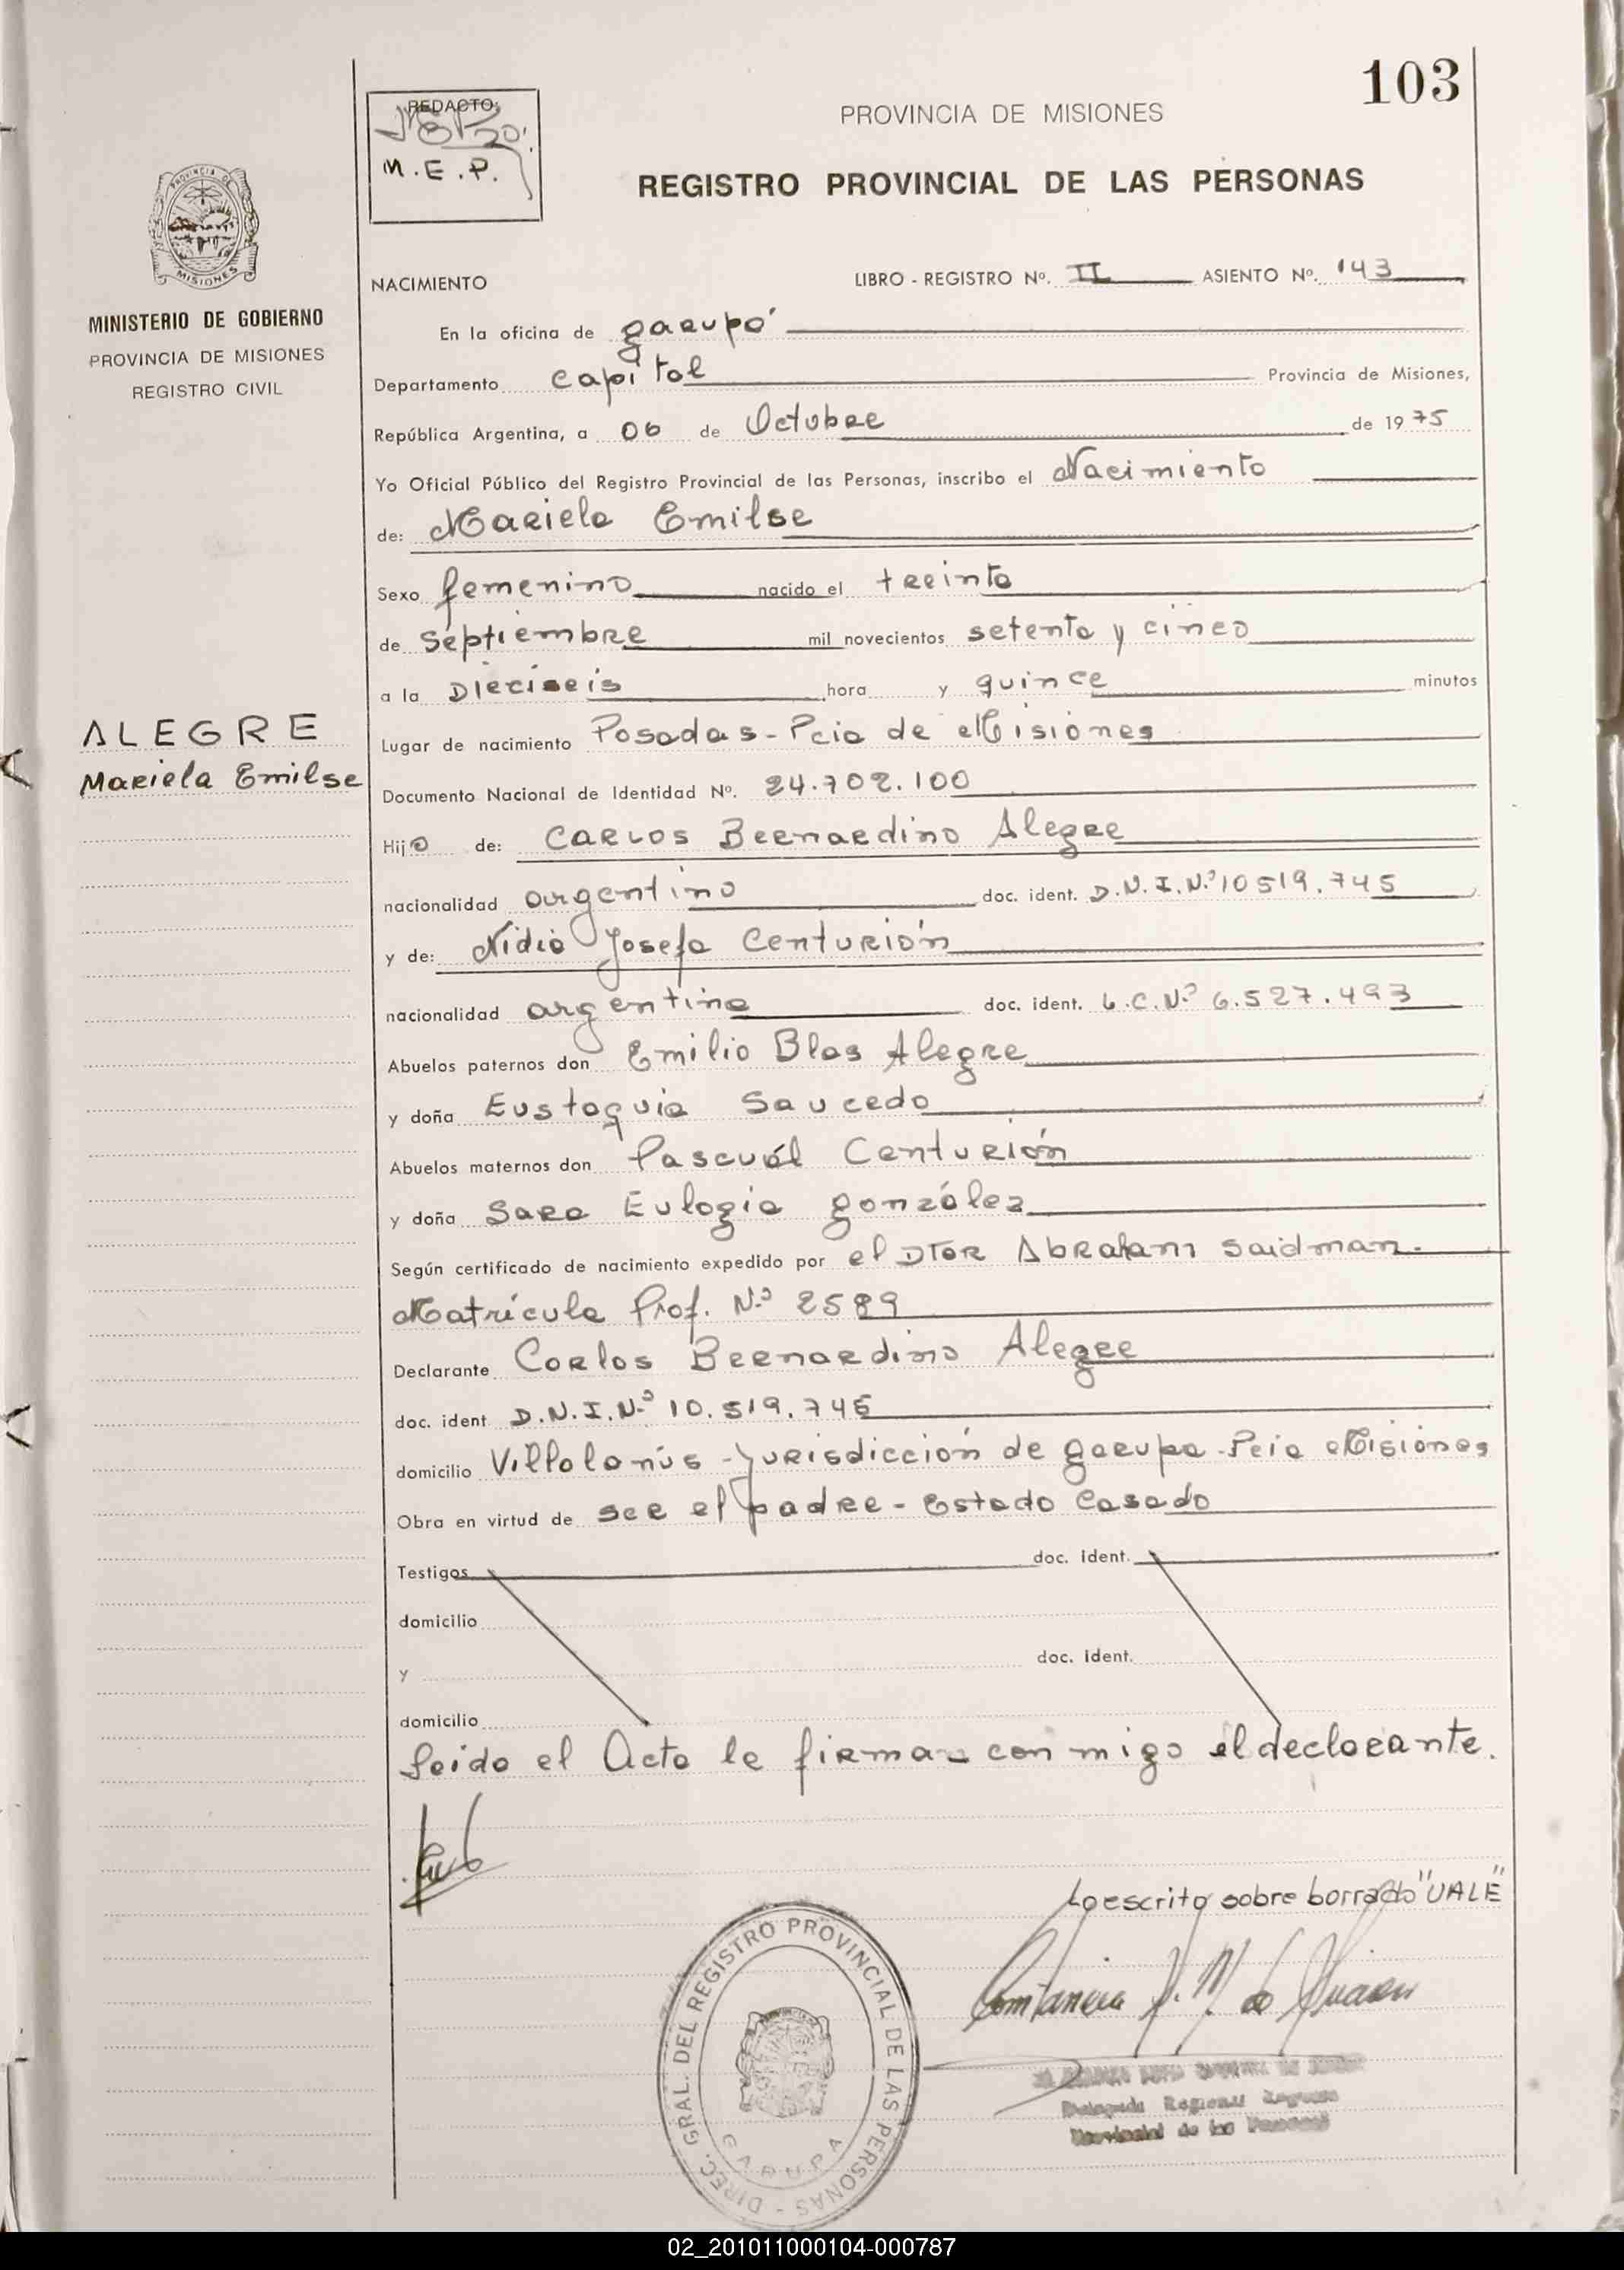 103
REDACTO:
M.E.P.
PROVINCIA DE MISIONES
REGISTRO PROVINCIAL DE LAS PERSONAS
PROVINCIA DE
MISIONES
MINISTERIO DE GOBIERNO
PROVINCIA DE MISIONES
REGISTRO CIVIL
NACIMIENTO LIBRO - REGISTRO Nº. II ASIENTO Nº. 143
En la oficina de garupá
Departamento capital Provincia de Misiones,
República Argentina, a 06 de Octubre de 1975
Yo Oficial Público del Registro Provincial de las Personas, inscribo el Nacimiento
de: Mariela Emilse
Sexo femenino nacido el treinta
de septiembre mil novecientos setenta y cinco
a la Dieciseis hora y quince minutos
ALEGRE
Mariela Emilse
Lugar de nacimiento Posadas - Pcia de Misiones
Documento Nacional de Identidad Nº. 24.702.100
Hija de: Carlos Bernardino Alegre
nacionalidad argentino doc. ident. D.N.I.Nº 10519.745
y de: Nidia Josefa Centurión
nacionalidad argentina doc. ident. L.C.Nº 6.527.493
Abuelos paternos don Emilio Blas Alegre
y doña Eustaquia Saucedo
Abuelos maternos don Pascuál Centurión
y doña Sara Eulogia gonzález
Según certificado de nacimiento expedido por el DTOR Abraham Saidman.
Matrícula Prof. Nº 2589
Declarante Carlos Bernardino Alegre
doc. ident. D.N.I.Nº 10.519.745
domicilio Villalanús - Jurisdicción de garupa - Pcia Misiones
Obra en virtud de ser el padre - Estado Casado
Testigos doc. ident.
domicilio
y doc. ident.
domicilio
Leida el Acta la firman con migo el declarante.
Lo escrito sobre borrado "VALE"
DIREC. GRAL. DEL REGISTRO PROVINCIAL DE LAS PERSONAS -
GARUPA
Delegada Regional
Provincial de las
02_201011000104-000787